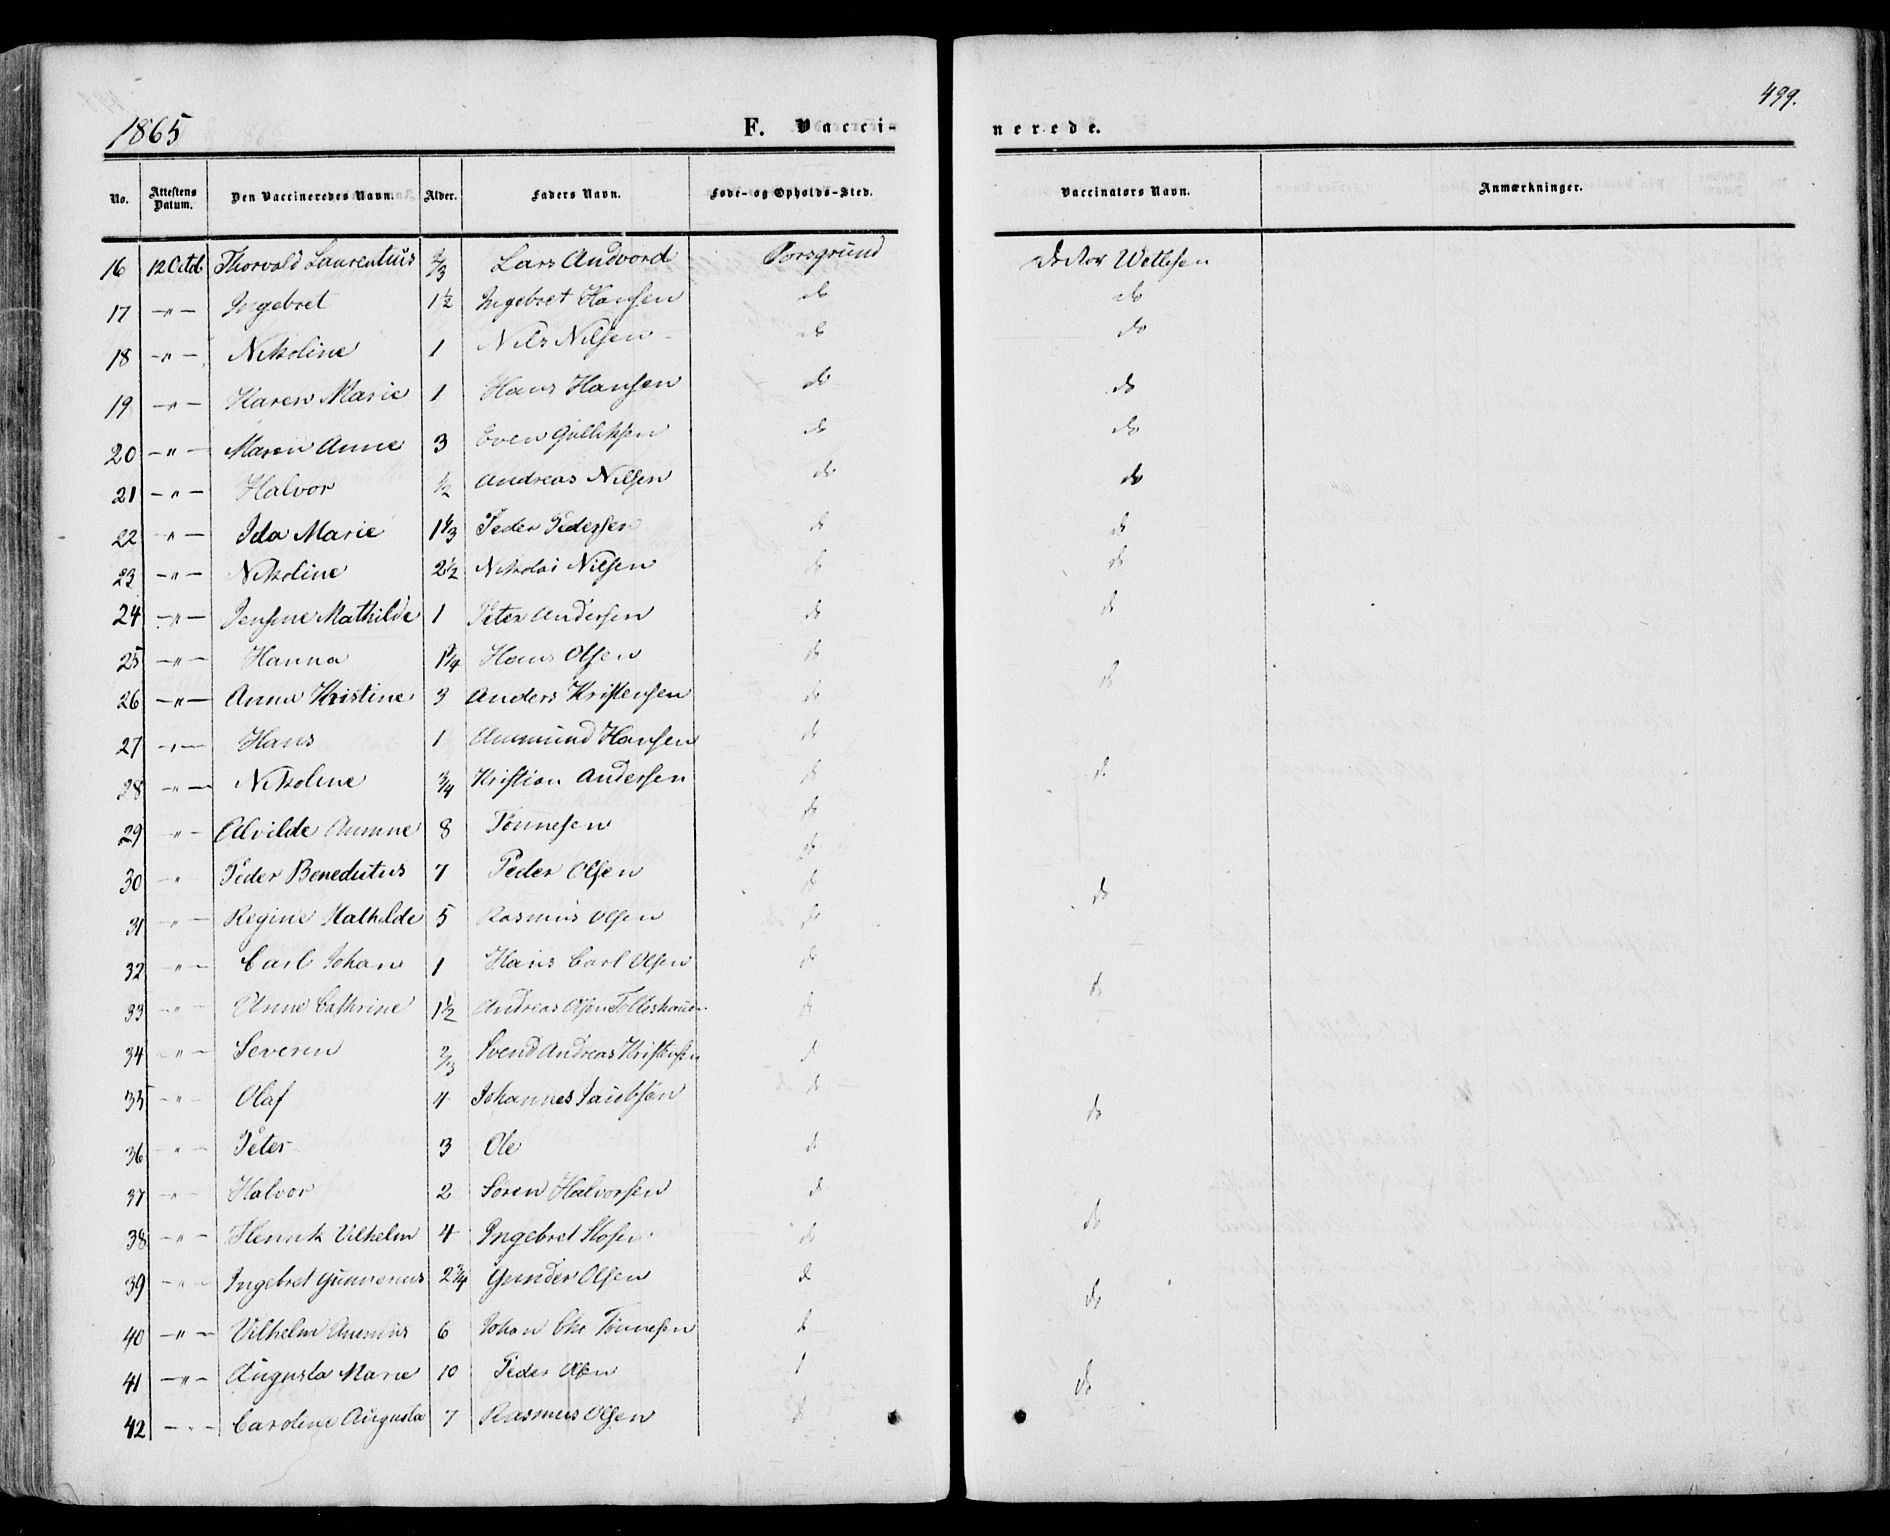 499.
1865 F. Vacci- nerede.
No. Attestens Datum. Den Vaccineredes Navn. Alder. Faders Navn. Føde- og Opholds-Sted. Vaccinatørs Navn. Anmærkninger.
16 12 Octb Thorvald Laurentius 2/3 Lars Andvord Porsgrund Doktor Wetlesen
17 -"- Ingebret 1 1/2 Ingebret Hansen do do
18 -"- Nikoline 1 Nils Nilsen do do
19 -"- Karen Marie 1 Hans Hansen do do
20 -"- Maren Anne 3 Even Gulliksen do do
21 -"- Halvor 1/2 Andreas Nilsen do do
22 -"- Ida Marie 1 1/3 Peder Pedersen do do
23 -"- Nikoline 2 1/2 Nikolai Nilsen do do
24 -"- Jensine Mathilde 1 Peter Andersen do do
25 -"- Hanna 1 1/4 Hans Olsen do
26 -"- Anne Kristine 3 Anders Kristensen do do
27 -"- Hans 1 Aamund Hansen do
28 -"- Nikoline 3/4 Kristian Andersen do do
29 " - Alvilde 8 Tønnesen do
30 " Peder Benedictus 7 Peder Olsen do do
31 " - Regine Mathilde 5 Rasmus Olsen do
32 -"- Carl Johan 1 Hans Carl Olsen do
33 -"- Anne Cathrine 1 1/2 Andreas Olsen do do
34 -"- Severin 2/3 Svend Andreas Kristensen do
35 -"- Olaf 4 Johannes Jacobsen do do
36 -"- Peter 3 Ole do
37 -"- Halvor 2 Søren Halvorsen do
38 -"- Henrik Vilhelm 4 Ingebret do do
39 -"- Ingebret Gunnerius 2 3/4 Gunder Olsen do do
40 -"- Vilhelm 6 Johan Chr Tønnesen do
41 -"- Augusta Marie 10 Peder Olsen do do
42 -"- Caroline Augusta 7 Rasmus Olsen do